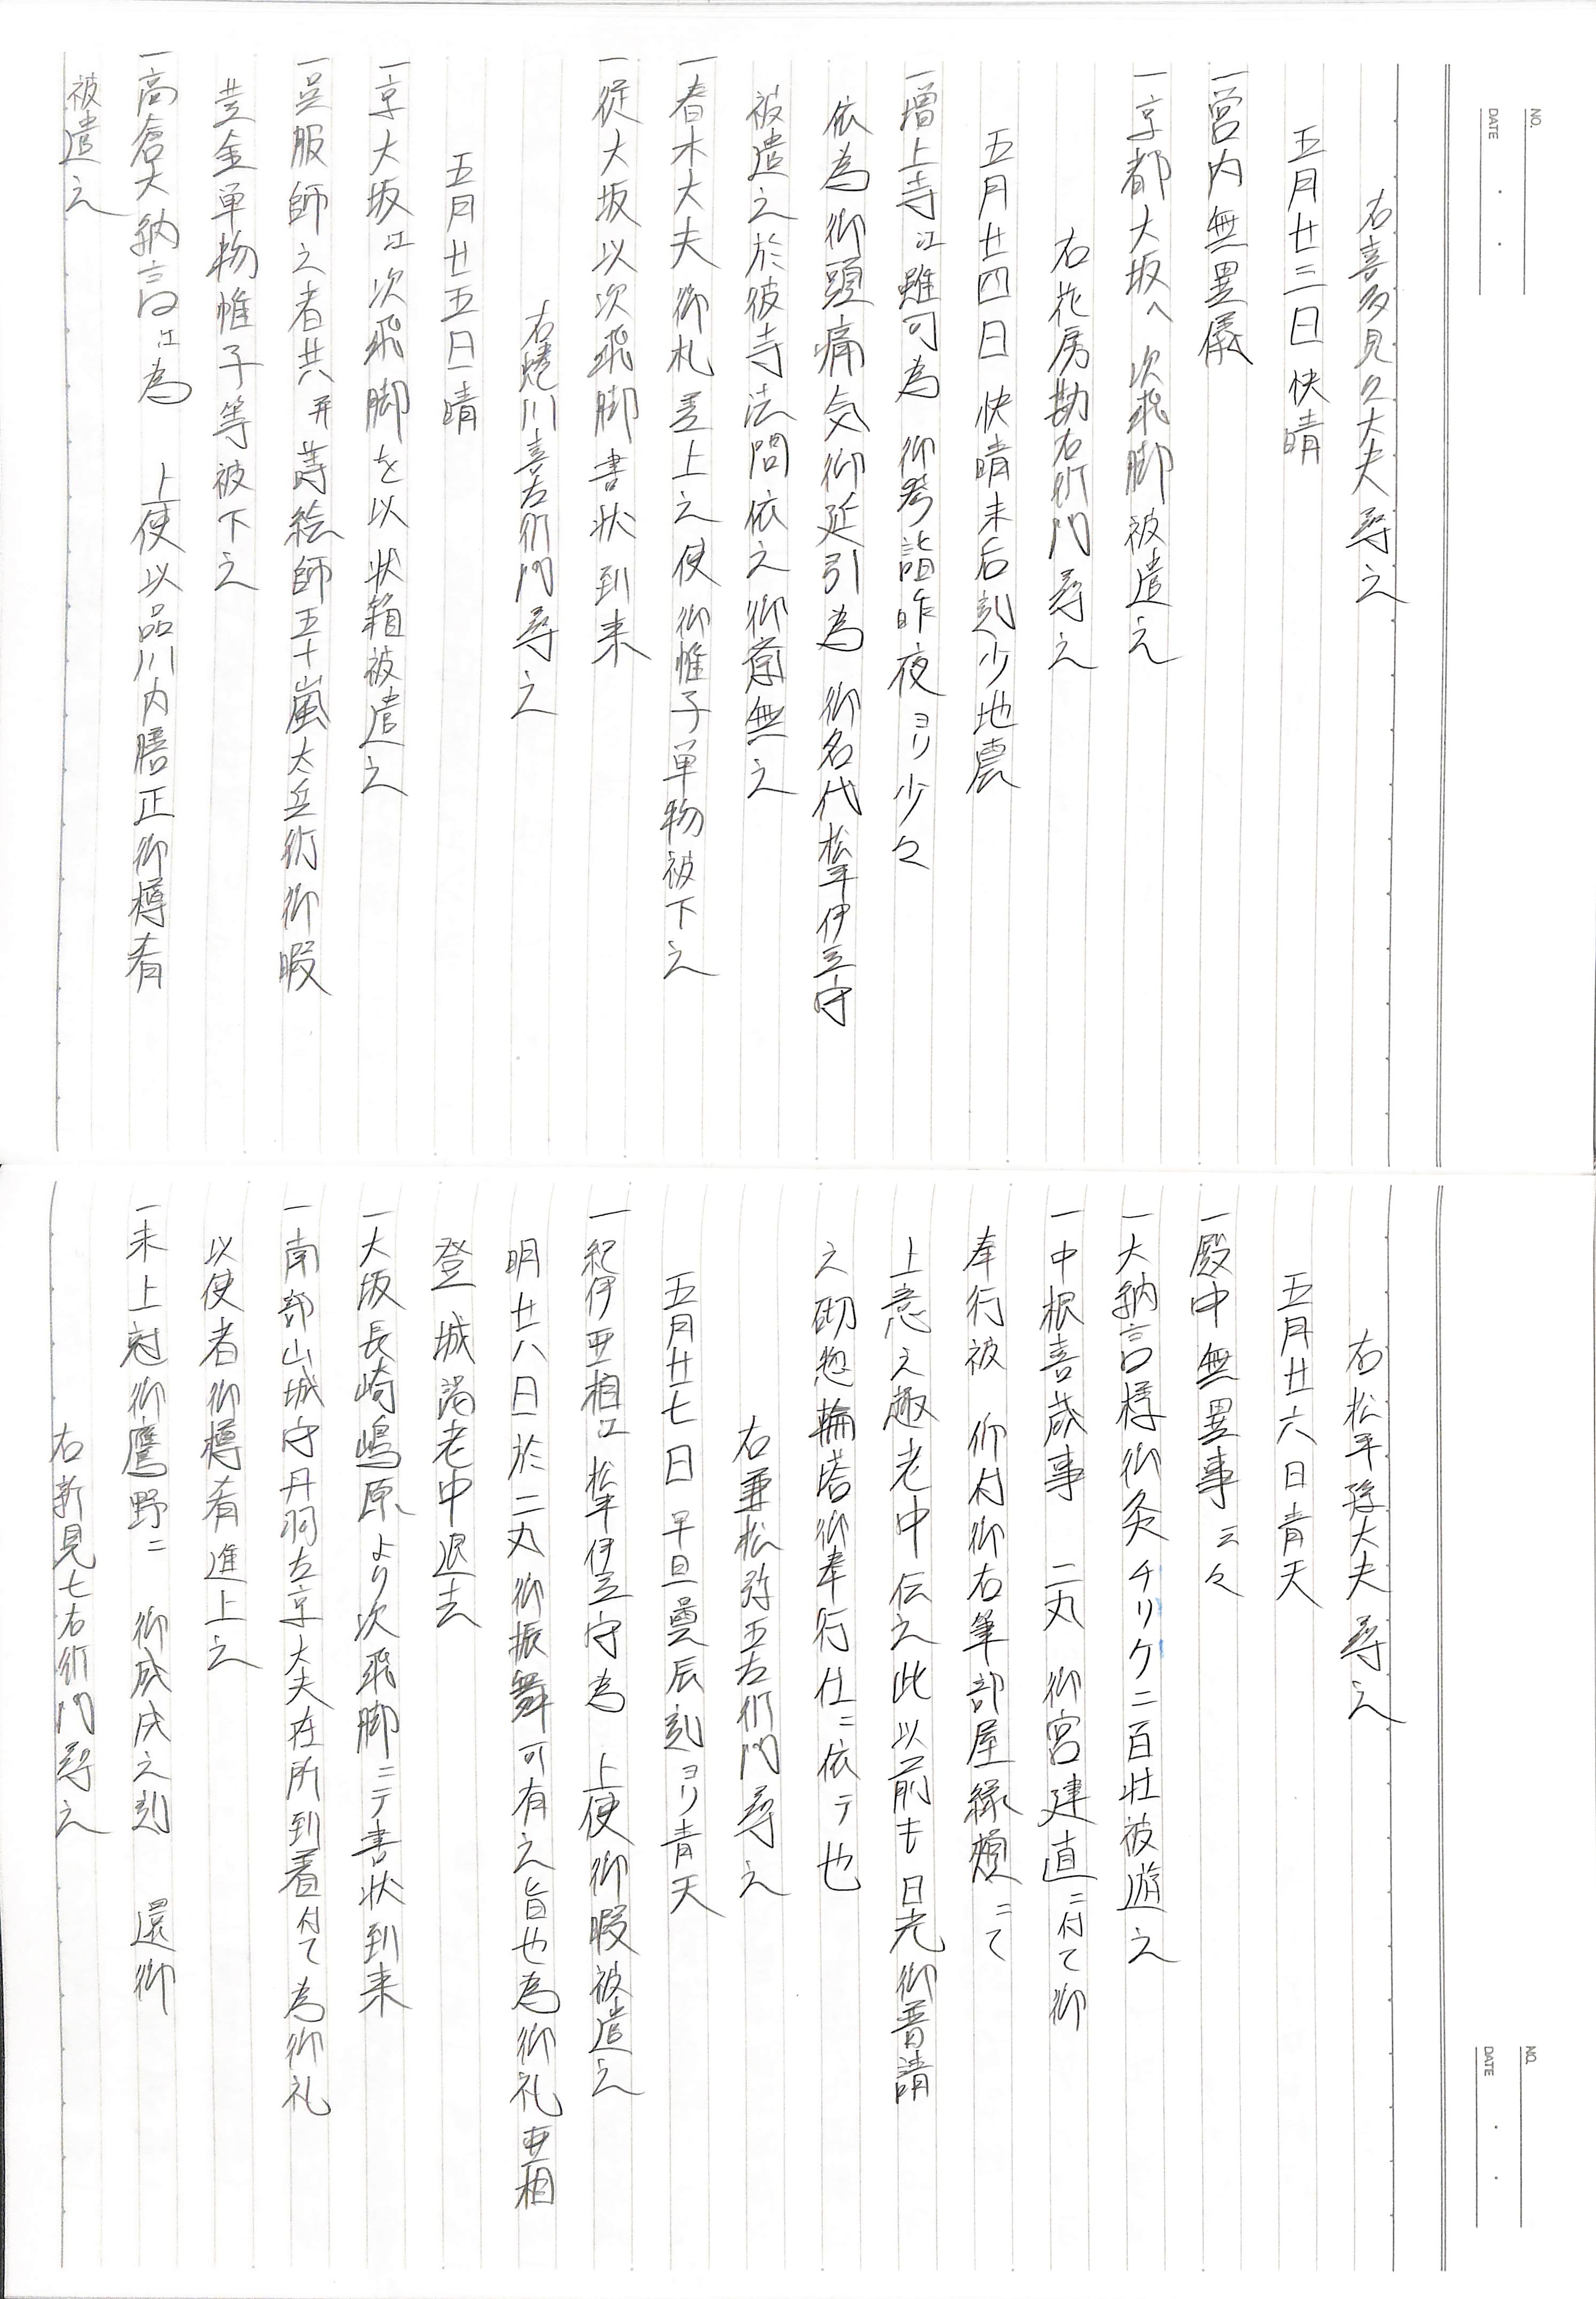 NO.
DATE
右喜多見久大夫尋之
五月廿三日 快晴
一宮内無異儀
一京都大坂へ次飛脚被遣之
右花房勘右衛門尋之
五月廿四日 快晴未后刻少地震
一増上寺江雖可為 御参詣昨夜ヨリ少々
依為御頭痛気御延引為 御名代松平伊豆守
被遣之於彼寺法問依之御斎無之
一春木大夫御札差上之使御帷子単物被下之
一従大坂以次飛脚書状到来
右蜷川喜左衛門尋之
五月廿五日晴
一京大坂江次飛脚を以状箱被遣之
一呉服師之者共并蒔絵師五十嵐太兵衛御暇
黄金単物帷子等被下之
一高倉大納言江為 上使以品川内膳正御樽肴
被遣之
NO.
DATE
右松平孫大夫尋之
五月廿六日青天
一殿中無異事云々
一大納言様御灸チリケ二百壮被遊之
一中根喜蔵事 二丸 御宮建直ニ付て御
奉行被 仰付御右筆部屋縁頬ニて
上意之趣老中伝之此以前も日光御普請
之砌惣輪塔御奉行仕ニ依テ也
右兼松弥五左衛門尋之
五月廿七日 早旦曇辰刻ヨリ青天
一紀伊亜相江松平伊豆守為 上使御暇被遣之
明廿八日於二丸御振舞可有之旨也為御礼亜相
登 城謁老中退去
一大坂長崎嶋原より次飛脚ニテ書状到来
一南部山城守丹羽左京大夫在所到着付て為御礼
以使者御樽肴進上之
一未上尅御鷹野ニ 御成戌之刻 還御
右新見七右衛門尋之